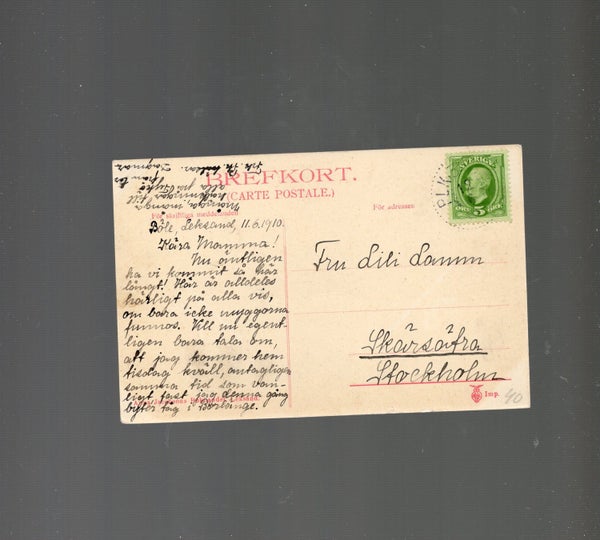 BREFKORT.
(CARTE POSTALE.)
För skriftliga meddelanden
För adressen
SVERIGE
5
Böle, Leksand, 11.6.1910.
Kära Mamma!
Nu äntligen
ha vi kommit så här
långt! Här är alldeles
härligt på alla vis,
om bara icke myggorna
funnos. Vill nu egent-
ligen bara tala om,
att jag kommer hem
tisdag kväll, antagligen
samma tid som van-
ligt fast jag denna gång
byter tåg i Borlänge.
många, många
hälsningar till
alla på
från
Dagmar.
Fru Lili Lamm
Skärsätra
Stockholm
Leksand.
Imp.
40